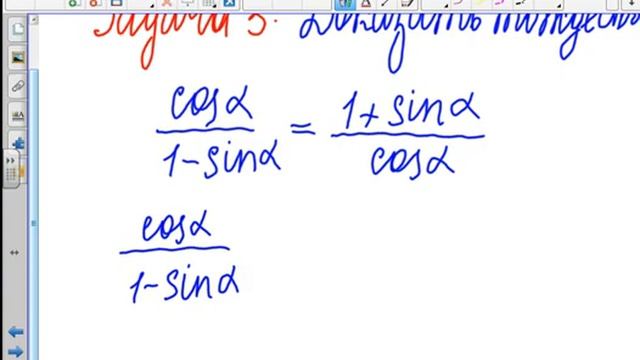 Задача 3. Доказать тождество
cosα / 1-sinα = 1+sinα / cosα
cosα / 1-sinα